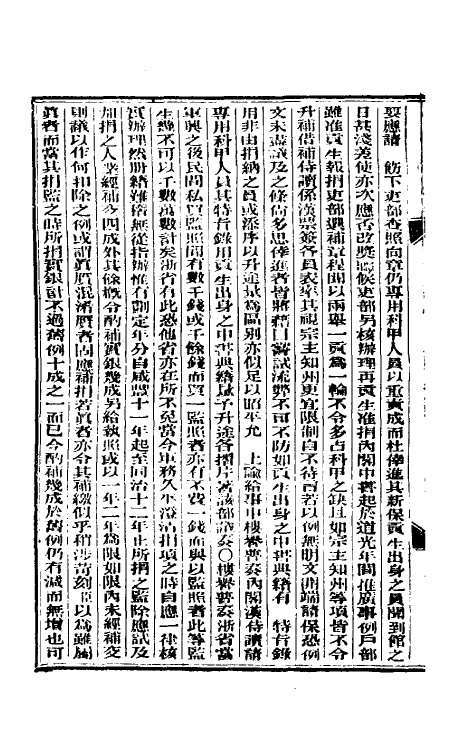 要應請　飭下吏部查照向章仍專用科甲人員以重責成而杜倖進其新保貢生出身之員聞到館之
日甚淺差使亦次應否改獎聽候吏部另核辦理再貢生准捐內閣中書起於道光年間推廣事例戶部
雖准貢生報捐吏部選補章程開以兩舉一貢為一輪不令多占科甲之缺且如宗主知州等項皆不令
升補借補侍讀係漢票簽各員表率其視宗主知州更宜限制自不待言若以例無明文開端請保恐例
文未盡議及之條尚多思倖進者皆將藉口嘗試流弊不可不防如貢生出身之中書典籍有　特旨錄
用非由捐納之員或添序以升途量為區別亦似足以昭平允　上諭給事中樓譽普奏內閣漢侍讀請
專用科甲人員其特旨錄用貢生出身之中書典籍量予升途各摺片著該部議奏○樓譽普奏浙省當
軍興之後民間私買監照聞有數千錢或千餘錢而買一監照者亦有不費一錢而與以監照者此等監
生幾不可以千數萬數計矣浙省有此恐他省亦在所不免當今軍務久平澄清捐項之時自應一律核
實辦理然冊籍難稽無從指辦惟有劃定年分自咸豐十一年起至同治十二年止所捐之監除應試及
加捐之人業經補交四成外其餘概令酌補實銀幾成另給執照或以一年二年為限如限內未經補交
則議以作何扣除之例或謂真贗混淆贗者固應補捐若真者亦令其補繳似乎稍涉苛刻臣以為雖屬
真者而當其捐監之時所捐實銀計不過舊例十成之一而已今酌補幾成於舊例仍有減而無增也可